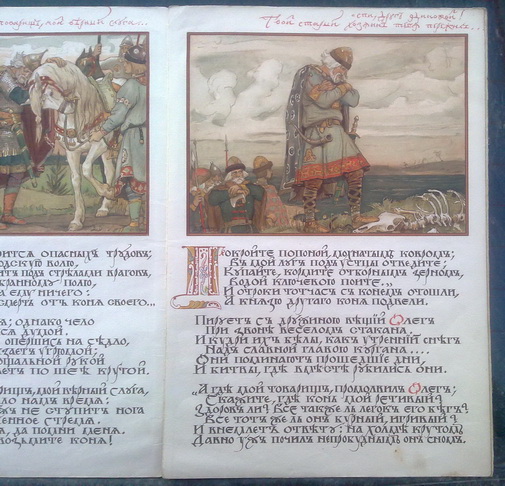 товарищъ, мой вѣрный слуга...
Спи, другъ одинокій!
Твой старый хозяинъ тебя пережилъ...
опасныхъ трудовъ;
волю,
подъ стрѣлами враговъ,
бранному полю,
ему ничего:
отъ коня своего...
однако чело
думой.
опершись на сѣдло,
угрюмой;
рукой
по шеѣ крутой.
мой вѣрный слуга,
намъ время:
не ступитъ нога
стремя.
да помни меня.
коня!
Покройте попоной, мохнатымъ ковромъ;
Въ мой лугъ подъ устцы отведите;
Купайте, кормите отборнымъ зерномъ,
Водой ключевою поите...
И отроки тотчасъ съ конемъ отошли,
А князю другаго коня подвели.
Пируетъ съ дружиною вѣщій Олегъ
При звонѣ веселомъ стакана.
И кудри ихъ бѣлы, какъ утренній снѣгъ
Надъ славной главою кургана....
Они поминаютъ прошедшіе дни,
И битвы, гдѣ вмѣстѣ рубились они.
„А гдѣ мой товарищъ, продолвилъ Олегъ;
Скажите, гдѣ конь мой ретивый?
Здоровъ ли? Все также ль легокъ его бѣгъ?
Все тотъ же ль онъ бурный, игривый?
И внемлетъ отвѣту: на холмѣ крутомъ
Давно ужъ почилъ непробуднымъ онъ сномъ.